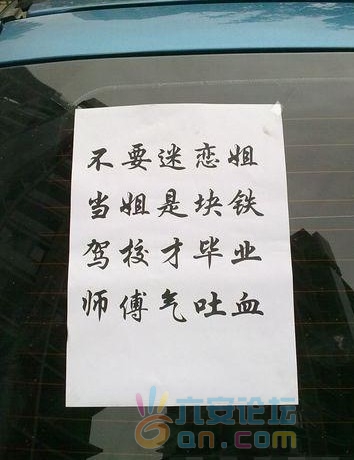 不要迷恋姐
当姐是块铁
驾校才毕业
师傅气吐血
六安论坛
6an.com